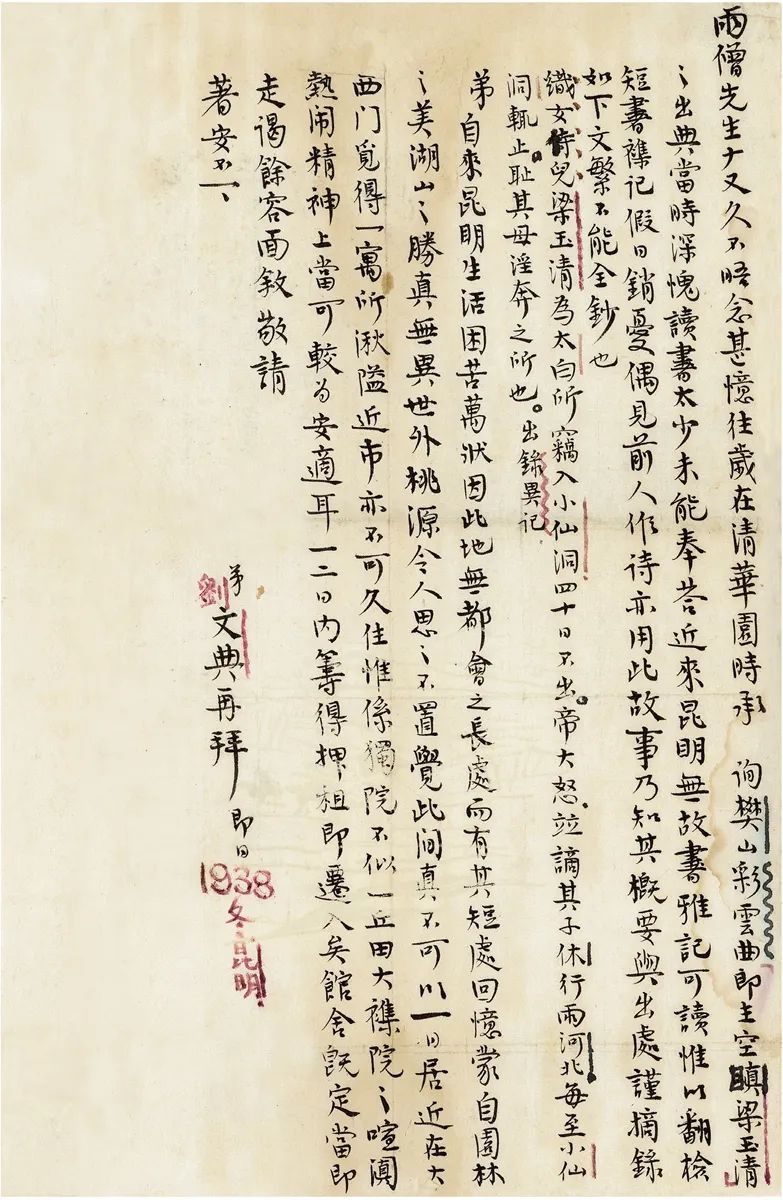 雨僧先生𠂇又久不晤念甚憶往歲在清華園時承 詢樊山彩雲曲即主空瞋梁玉清
之出典當時深愧讀書太少未能奉荅近來昆明無故書雅記可讀惟以翻檢
短書襍記假日銷憂偶見前人作詩亦用此故事乃知其概要與出處謹摘錄
如下文繁不能全鈔也
織女侍兒梁玉清為太白所竊入小仙洞四十日不出。帝大怒。竝謫其子休行雨河北每至小仙
洞輒止恥其母淫奔之所也。出錄異記
弟自來昆明生活困苦萬狀因此地無都會之長處而有其短處回憶蒙自園林
之美湖山之勝真無異世外桃源令人思之不置覺此间真不可以一日居近在大
西门覓得一寓所湫隘近市亦不可久住惟係獨院不似一丘田大襍院之喧闐
熱闹精神上當可較為安適耳一二日内籌得押租即遷入矣館舍既定當即
走謁餘容面敘敬請
著安不一一
弟劉文典再拜 即日
1938冬昆明